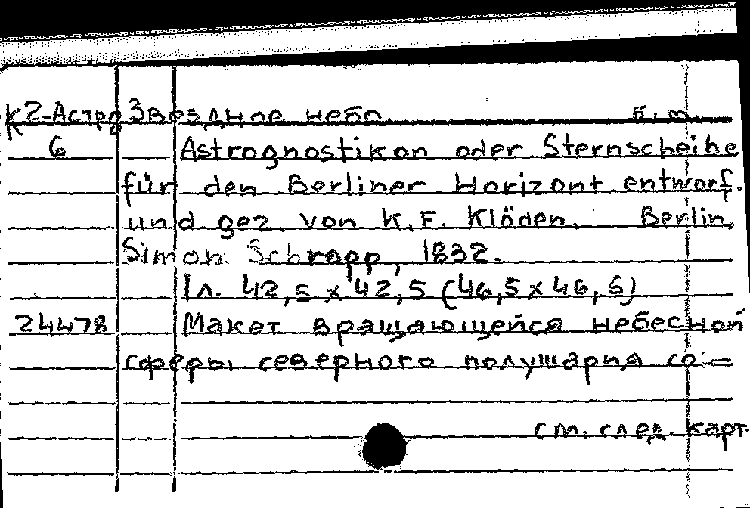 К2-Астро Звездное небо б.м.
6 Astrognostikon oder Sternscheibe
für den Berliner Horizont entworf.
und gez. von K.F. Klöden. Berlin,
Simon Schropp, 1832.
1л. 42,5 x 42,5 (46,5 x 46,5)
24478 Макет вращающейся небесной
сферы северного полушария со-
см. след. карт.